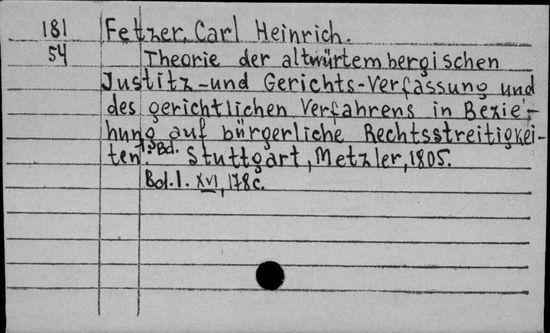 181 Fetzer, Carl Heinrich.
54 Theorie der altwürtembergischen
Justitz-und Gerichts-Verfassung und
des gerichtlichen Verfahrens in Bezie-
hung auf bürgerliche Rechtsstreitigkei-
ten. 1. Bd. Stuttgart, Metzler, 1805.
Bd. 1. XVI, 178c.